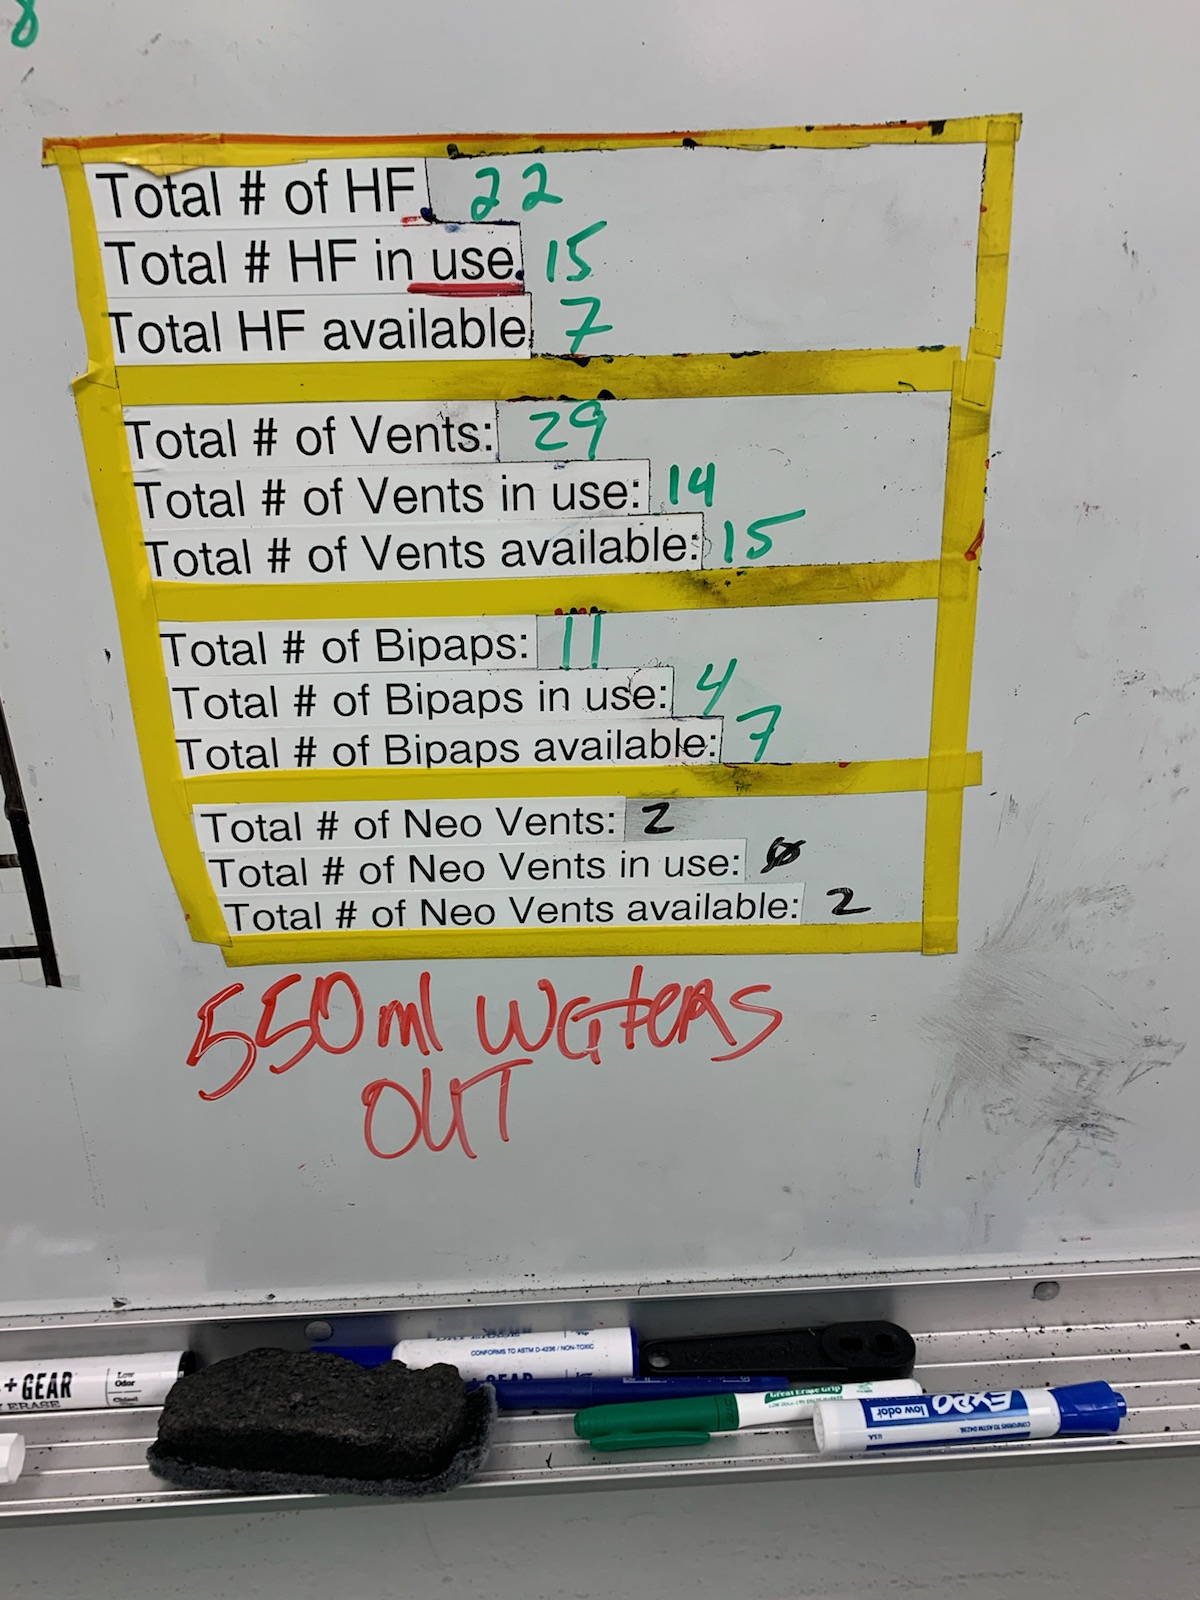 8
Total # of HF 22
Total # HF in use. 15
Total HF available 7
Total # of Vents: 29
Total # of Vents in use: 14
Total # of Vents available: 15
Total # of Bipaps: 11
Total # of Bipaps in use: 4
Total # of Bipaps available: 7
Total # of Neo Vents: 2
Total # of Neo Vents in use: 0
Total # of Neo Vents available: 2
550ml waters
OUT
CONFORMS TO ASTM D-4236 / NON-TOXIC
+ GEAR
ERASE
Low
Odor
Chisel
+ GEAR
Great Erase Grip
EXPO
low odor
CONFORMS TO ASTM D4236
U.S.A.